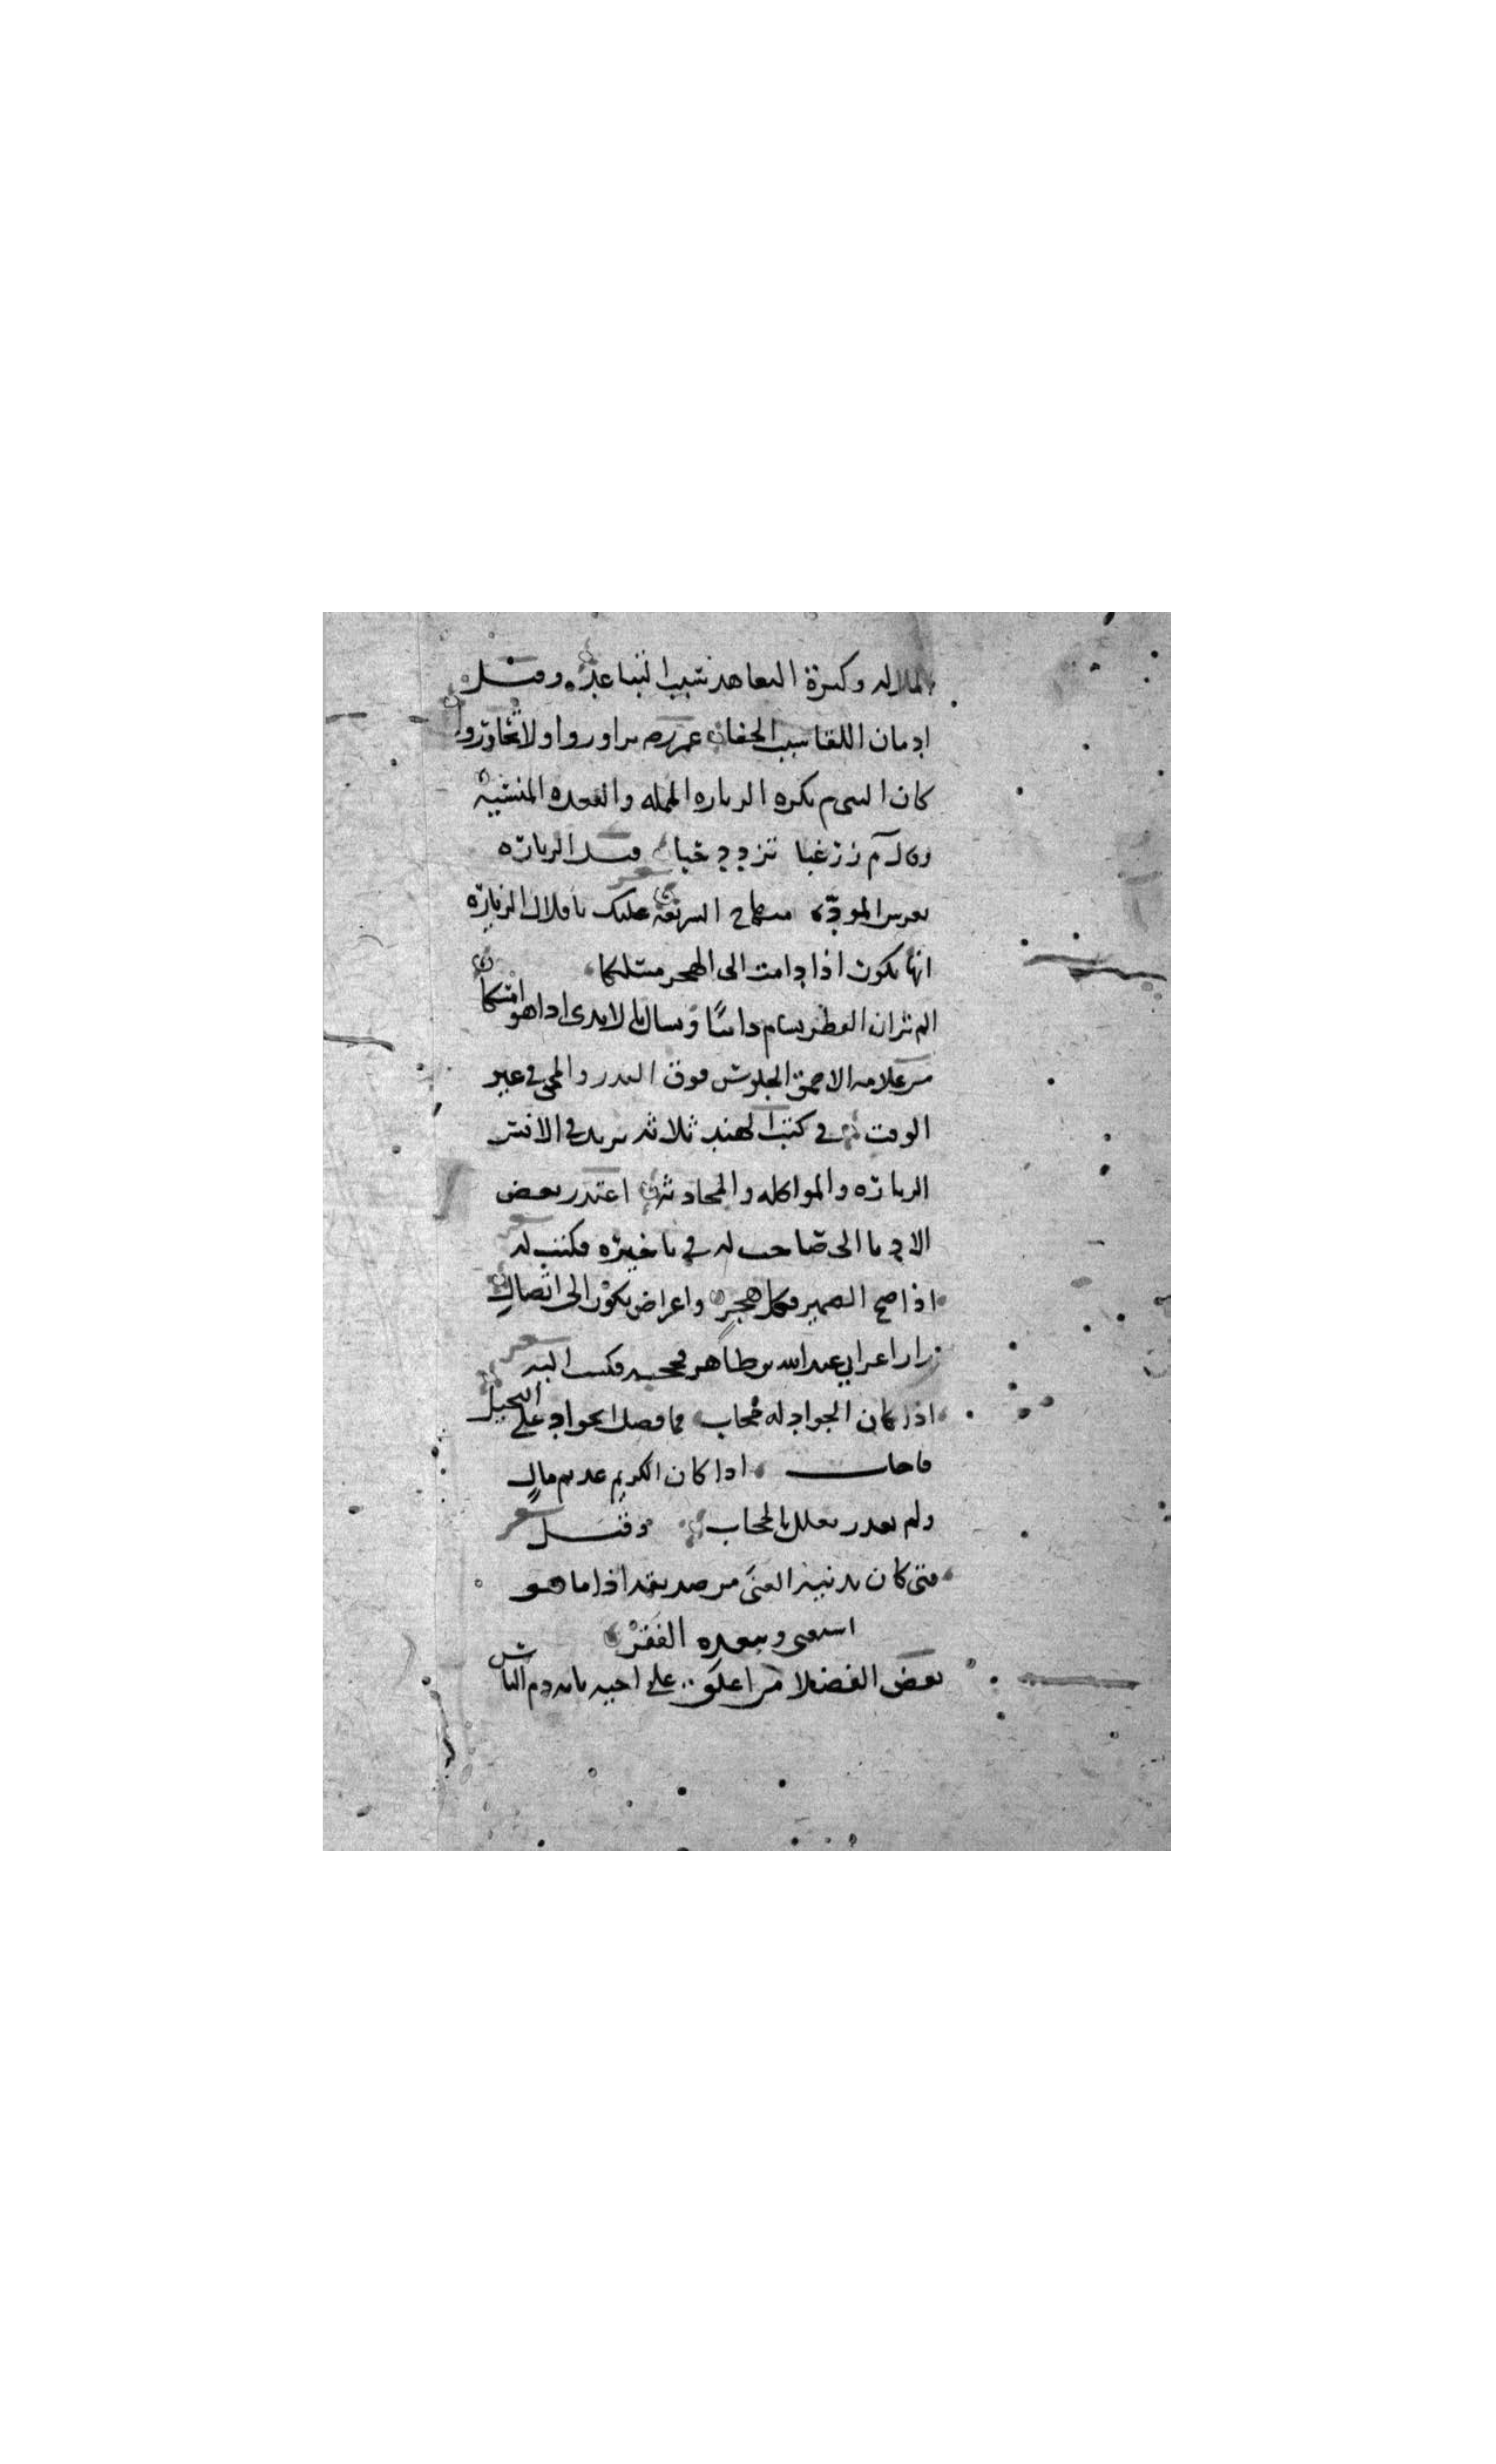 الملاله وكثرة التعاهد سبب التباعد وقيل
ادمان اللقا سبب الجفا عمر رضه تزاوروا ولا تجاوروا
كان النبي م يكره الزياره المملة والقعده المنسيه
وقال م زر غبا تزدد حبا قيل الزياره
تغرس الموده عليك باقلال الزيارة
انها تكون اذا دامت الى الهجر مسلكا
الم تر ان القطر يسام دائبا ويسال بالايدى اذا هو امسكا
من علامه الاحمق الجلوس فوق القدر والمجى في غير
الوقت في كتب الهند ثلاثه تزيد في الانس
الزياره والمواكله والمحادثه اعتذر بعض
الادبا الى صاحب له في تاخيره فكتب له
اذا صح الضمير فكل هجر واعراض يكون الى اتصال
زار اعرابي عبد الله بن طاهر فحجبه فكتب اليه
اذا كان الجواد له حجاب فما فضل الجواد على البخيل
فاجاب اذا كان الكريم عديم مال
ولم يعذر تعلل بالحجاب وقيل
فتى كان يدنيه الغنى من صديقه اذا ما هو
استغنى ويبعده الفقر
بعض الفضلا على اخيه الناس